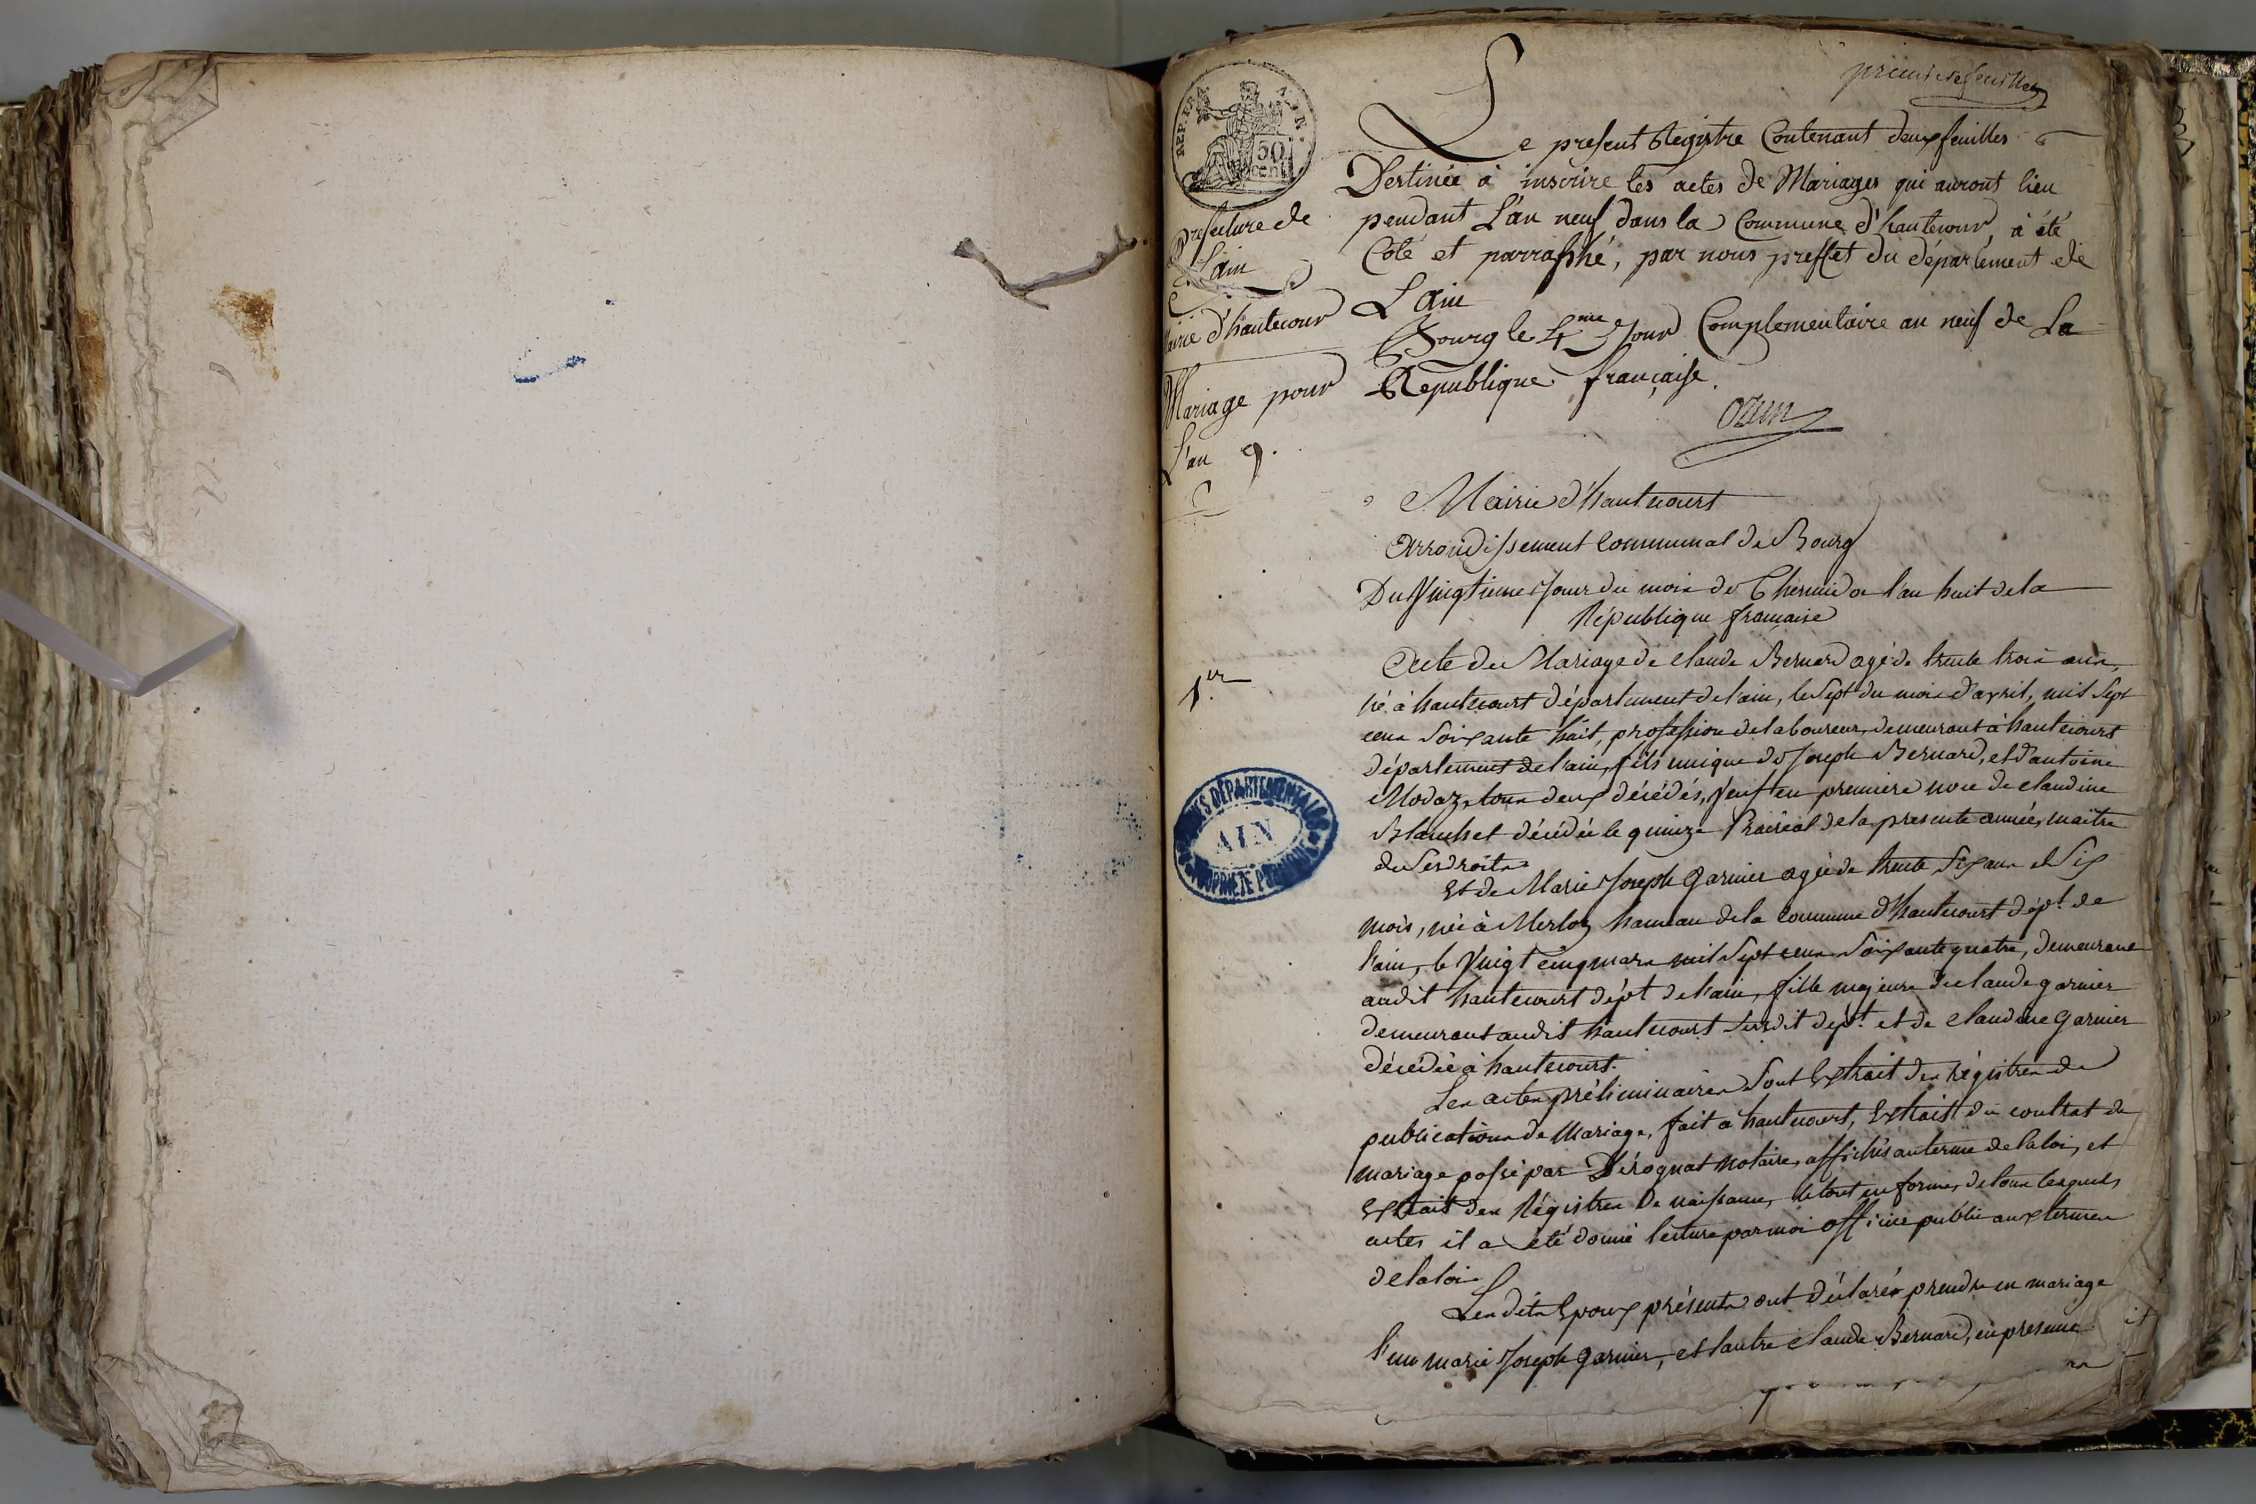 premiere feuillet
REP. FRA
50
cent
Le present Registre Contenant deux feuilles
Destinée à inscrire les actes de Mariages qui auront lieu
pendant L'an neuf dans la Commune d'hautecour, à été
Coté et parraphé, par nous preffet du département de
L'ain
Bourg le 4me Jour Complementaire an neuf de La
Republique française.
Ozun
Prefecture de
L'ain
Mairie d'hautecour
Mariage pour
L'an 9.
Mairie d'hautecourt
Arrondissement Communal de Bourg
Du Vingtieme Jour du mois de Thermidor l'an huit de la
République française
1er
Acte du Mariage de Claude Bernard agé de trente trois ans,
né à hautecourt département de l'ain, le sept du mois d'avril, mil sept
cens soixante huit, profession de laboureur, demeurant à hautecourt
département de l'ain, fils unique de Joseph Bernard, et d'antoine
Modaz, tous deux décédés, veuf en premiere noce de claudine
Blanchet décédée le quinze Prairéal de la presente année, maitre
de ses droits
Et de Marie Joseph Garnier agée de trente six ans et six
mois, née à Merloz hameau de la commune d'hautecourt dépt. de
l'ain, le vingt cinq mars mil sept cens soixante quatre, demeurant
audit hautecourt dépt de l'ain, fille majeure de claude garnier
demeurant audit hautecourt susdit dépt. et de claudine Garnier
décédée à hautecourt.
Les actes préliminaires sont Extrait des registres de
publications de Mariage, fait a hautecourt, Extrait du contrat de
mariage passé par Dérognat Notaire, affichés au terme de la loi, et
Extrait des Régistres de naissance, le tout en forme, de tous lesquels
actes il a été donné lecture par moi officié public aux termes
de la loi
Les dits Epoux présents ont déclarés prendre en mariage
l'un marie Joseph garnier, et l'autre claude Bernard, en presence
ARCHIVES DÉPARTEMENTALES
AIN
PROPRIÉTÉ PUBLIQUE